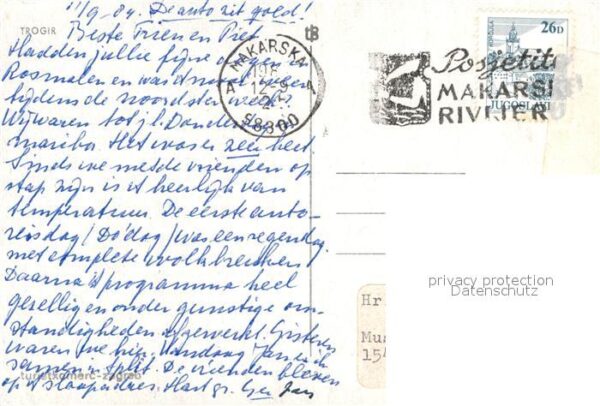 11/9-84. De auto zit goed!
TROGIR
Beste Trien en Piet
Hadden jullie fijne dagen in
Rosmalen en was 't mooi weer
tijdens de
Wij waren tot j.l. Donderdag in
maribor. Het was er zeer heet
Sinds we met de vrienden op
stap zijn is 't heerlijk van
temperatuur. De eerste auto-
reisdag (Do'dag) was een regendag
met complete wolkbreuken
Daarna 't programma heel
gezellig en onder gunstige om-
standigheden afgewerkt. Gisteren
waren we hier. Vandaag Jan en ik
samen in Split. De vrienden bleven
op 't slaapadres. Hart. gr. Ger Jan
turistkomerc-zagreb
MAKARSKA
12-9
58300
Posjetite
MAKARSKU
RIVIJERU
26D
JUGOSLAVIJA
privacy protection
Datenschutz
Hr
Mus
154